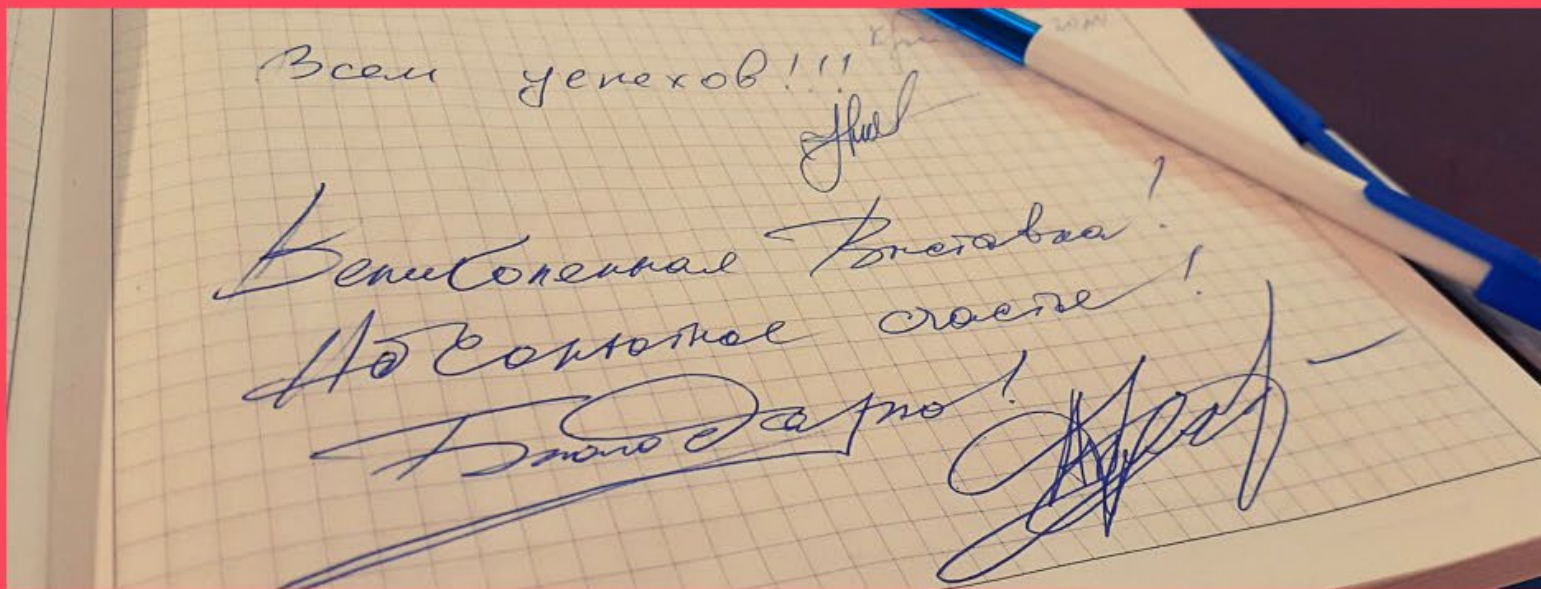 Всем успехов!!!
Великолепная Выставка!
Абсолютное счастье!
Благодарю!